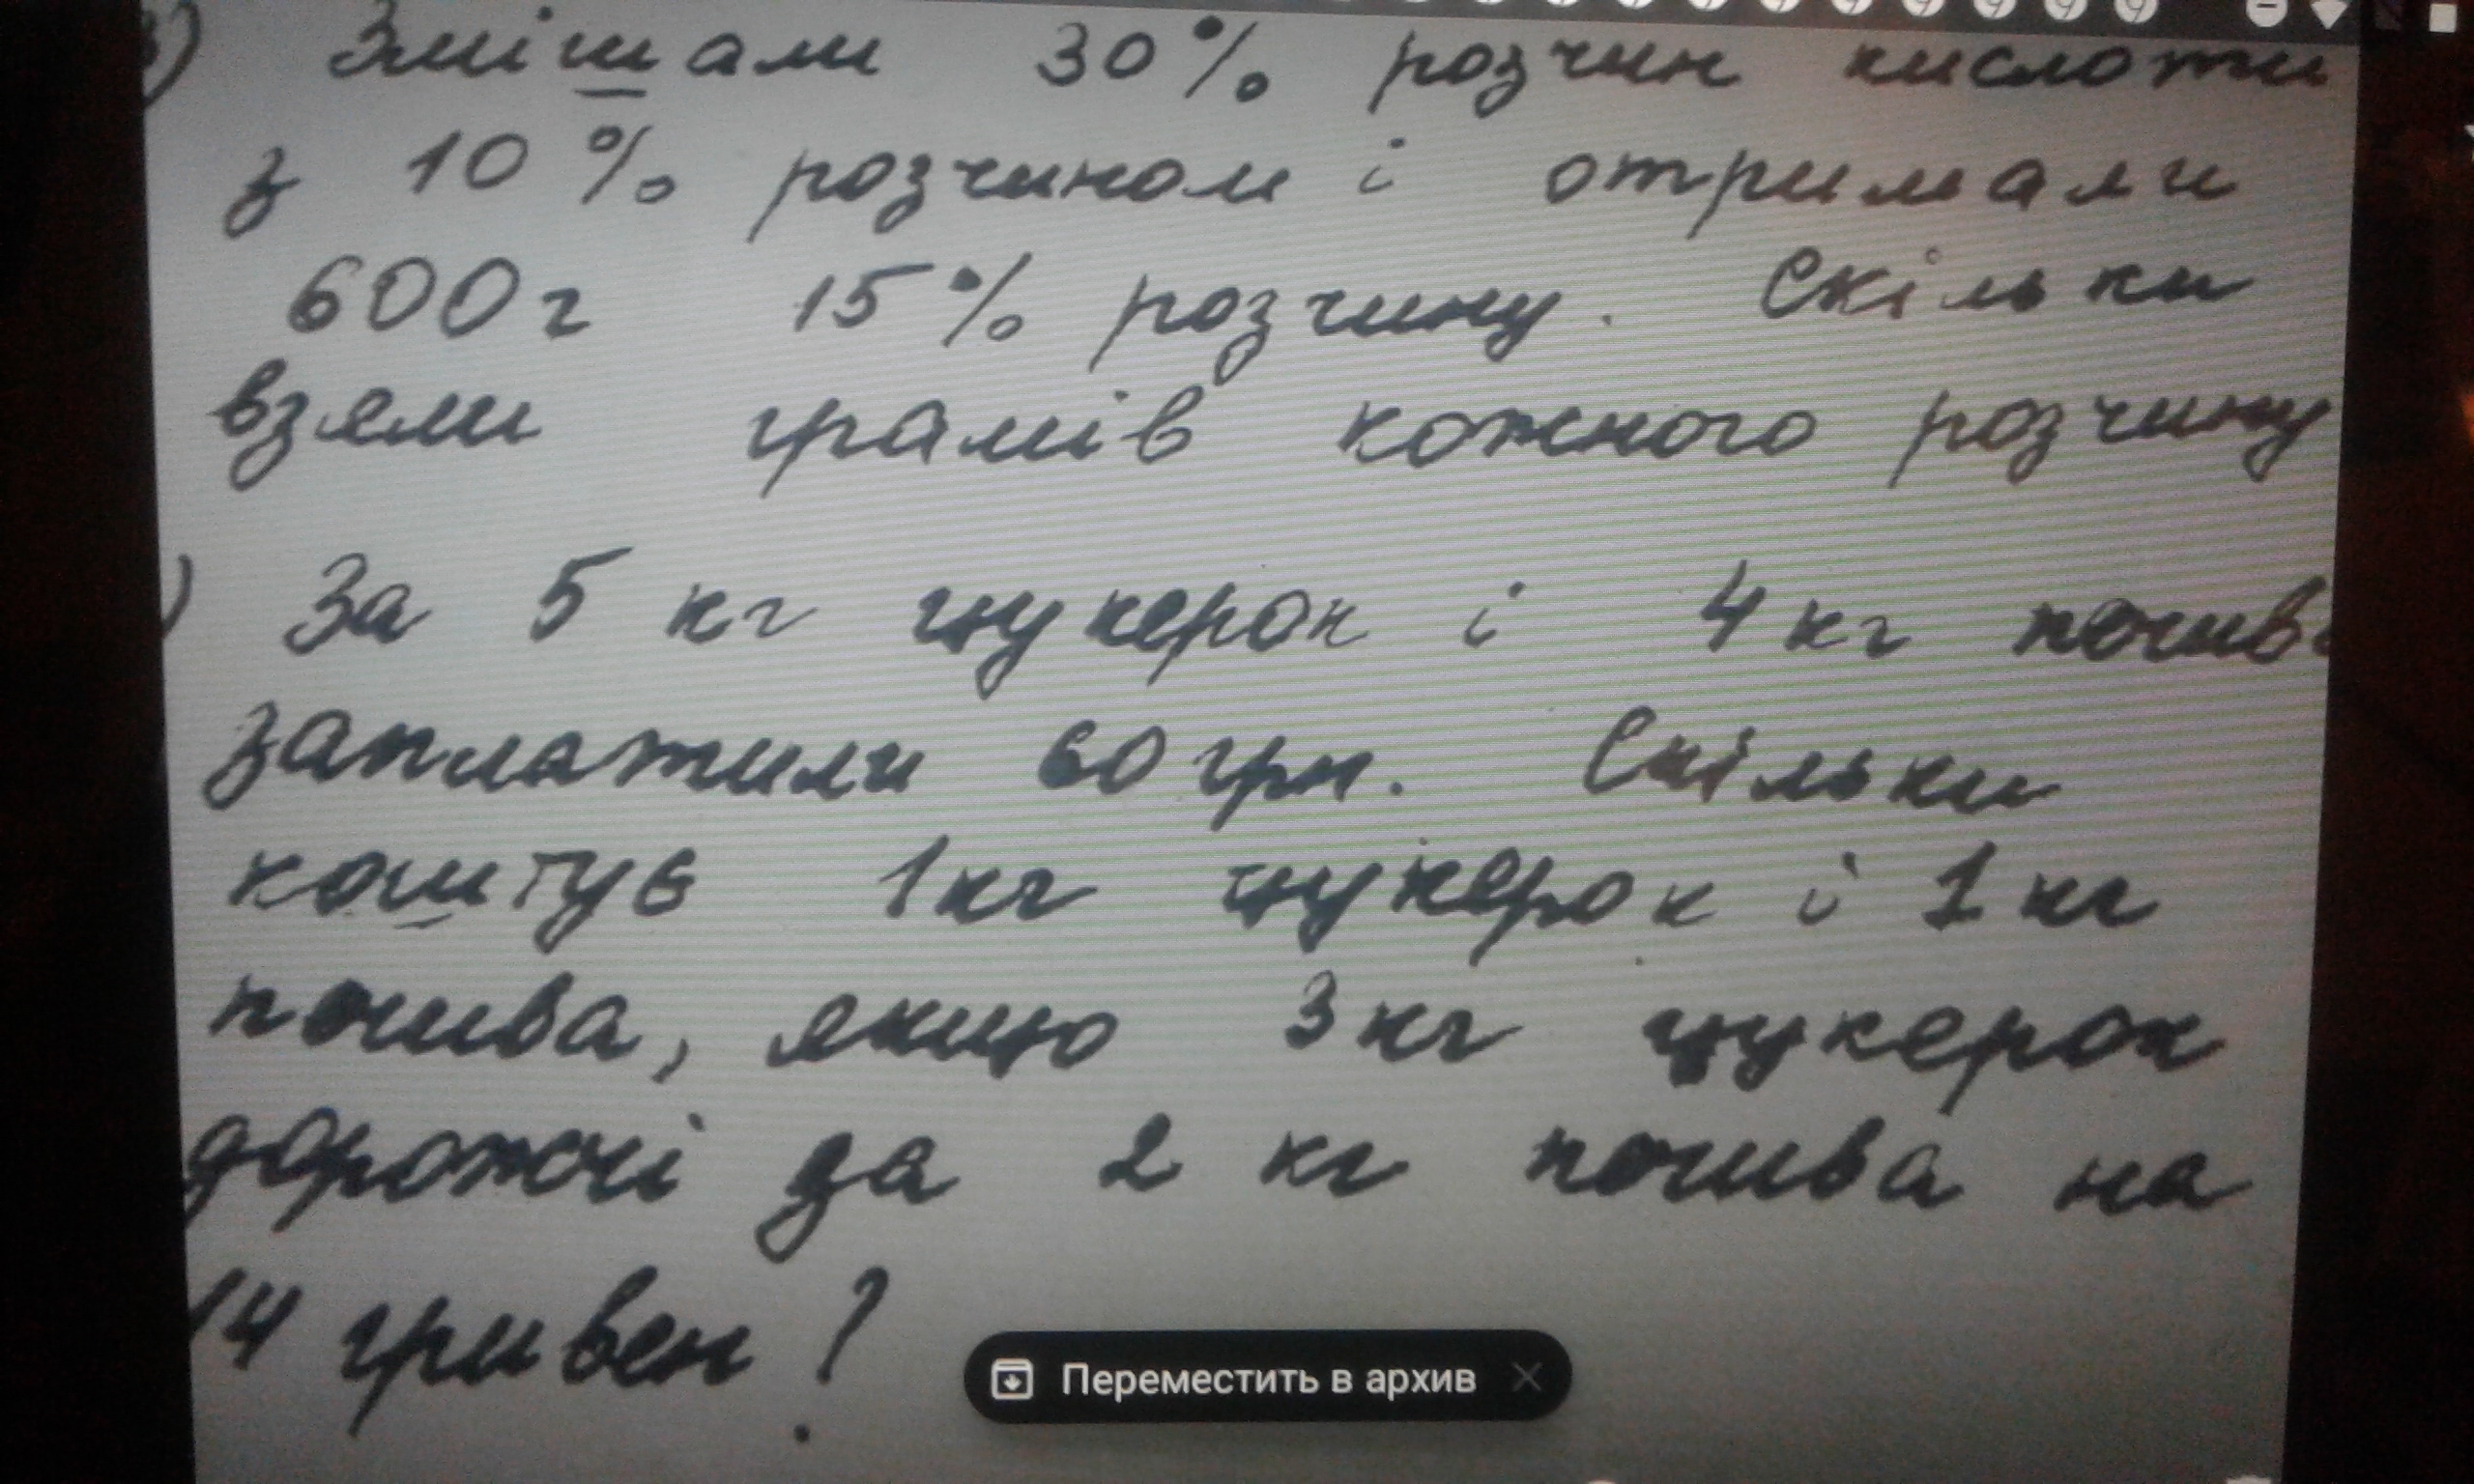 3) Змішали 30% розчин кислоти
з 10% розчином і отримали
600г 15% розчину. Скільки
взяли грамів кожного розчину
) За 5 кг цукерок і 4 кг печив
заплатили 60 грн. Скільки
коштує 1кг цукерок і 1 кг
печива, якщо 3 кг цукерок
дорожчі за 2 кг печива на
14 гривен?
Переместить в архив